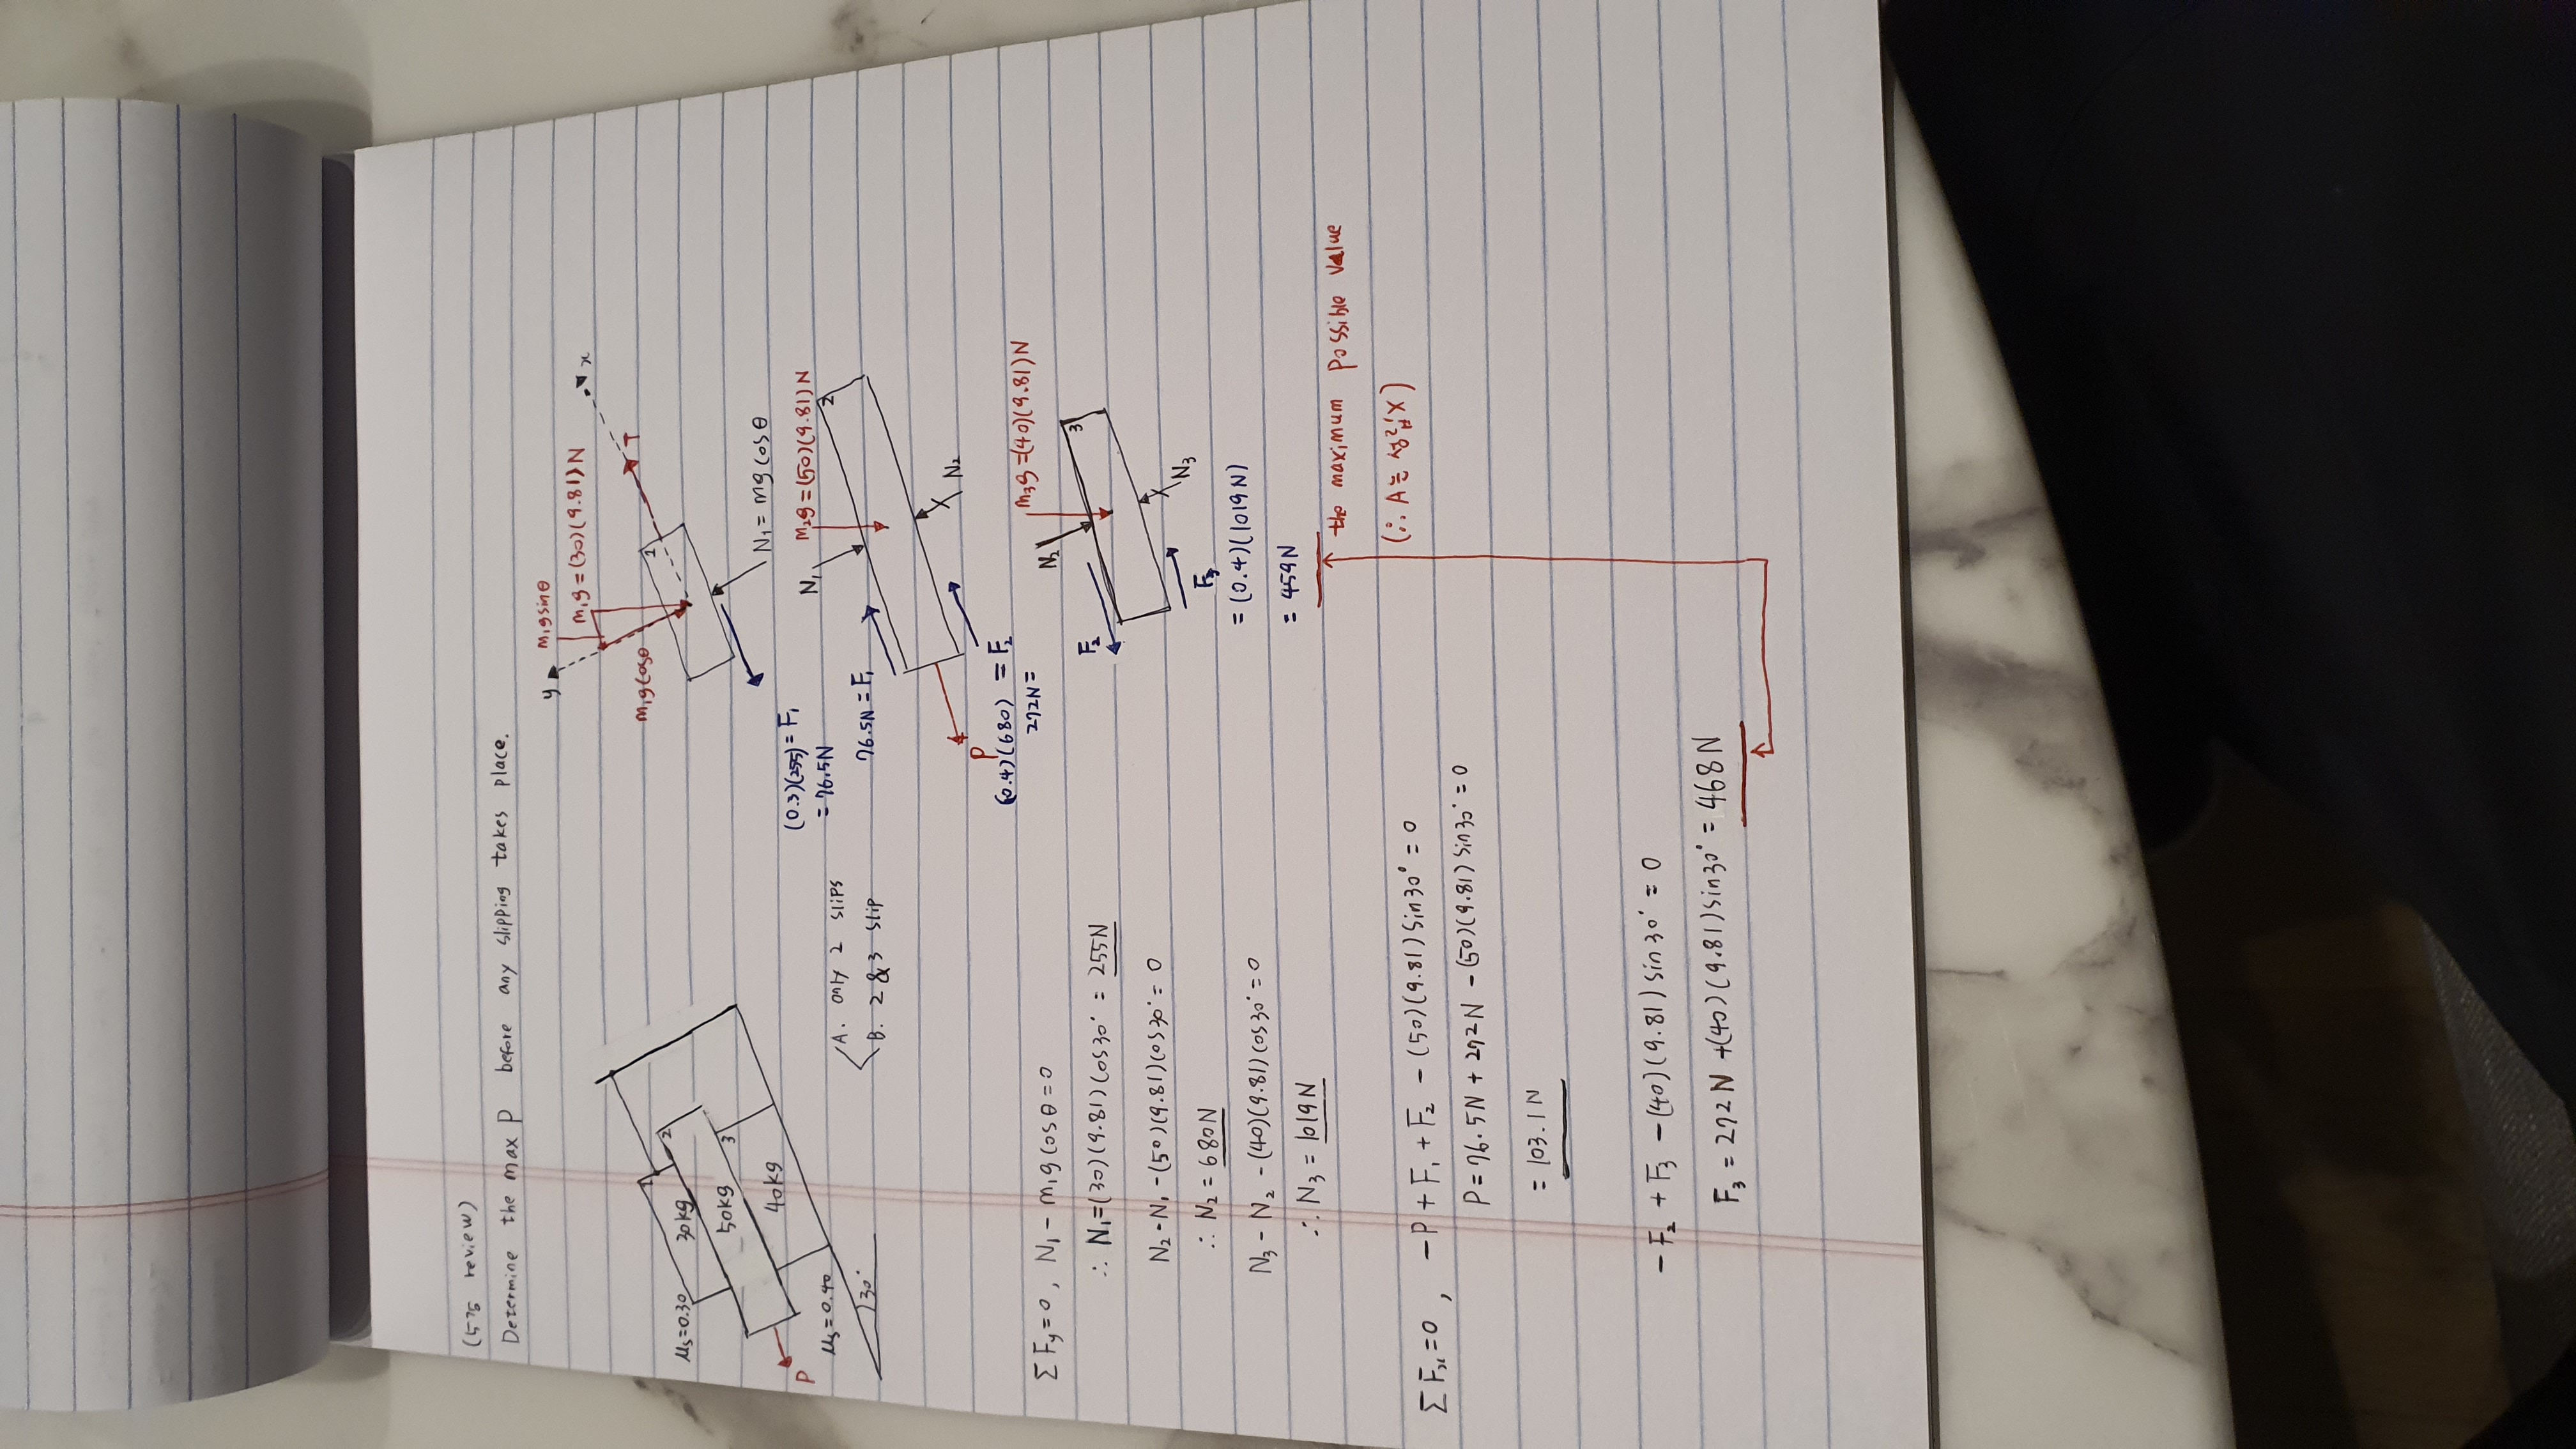 (575 review)
Determine the max P before any slipping takes place.
μs=0.30
30kg
1
50kg
2
40kg
3
P
μs=0.40
30°
A. only 2 slips
B. 2&3 slip
y
x
m₁g sinθ
m₁g=(30)(9.81)N
m₁g cosθ
T
1
N₁=mg cosθ
(0.3)(255)=F₁
=76.5N
N₁
m₂g=(50)(9.81)N
2
76.5N=F₁
N₂
P
(0.4)(680)=F₂
272N=
N₂
m₃g=(40)(9.81)N
3
F₂
F₃
N₃
=(0.4)(1019N)
=459N
the maximum possible value
ΣFy=0, N₁-m₁g cosθ=0
∴ N₁=(30)(9.81)cos30°=255N
N₂-N₁-(50)(9.81)cos30°=0
∴ N₂=680N
N₃-N₂-(40)(9.81)cos30°=0
∴ N₃=1019N
ΣFx=0, -P+F₁+F₂-(50)(9.81)sin30°=0
P=76.5N+272N-(50)(9.81)sin30°=0
=103.1N
-F₂+F₃-(40)(9.81)sin30°=0
F₃=272N+(40)(9.81)sin30°=468N